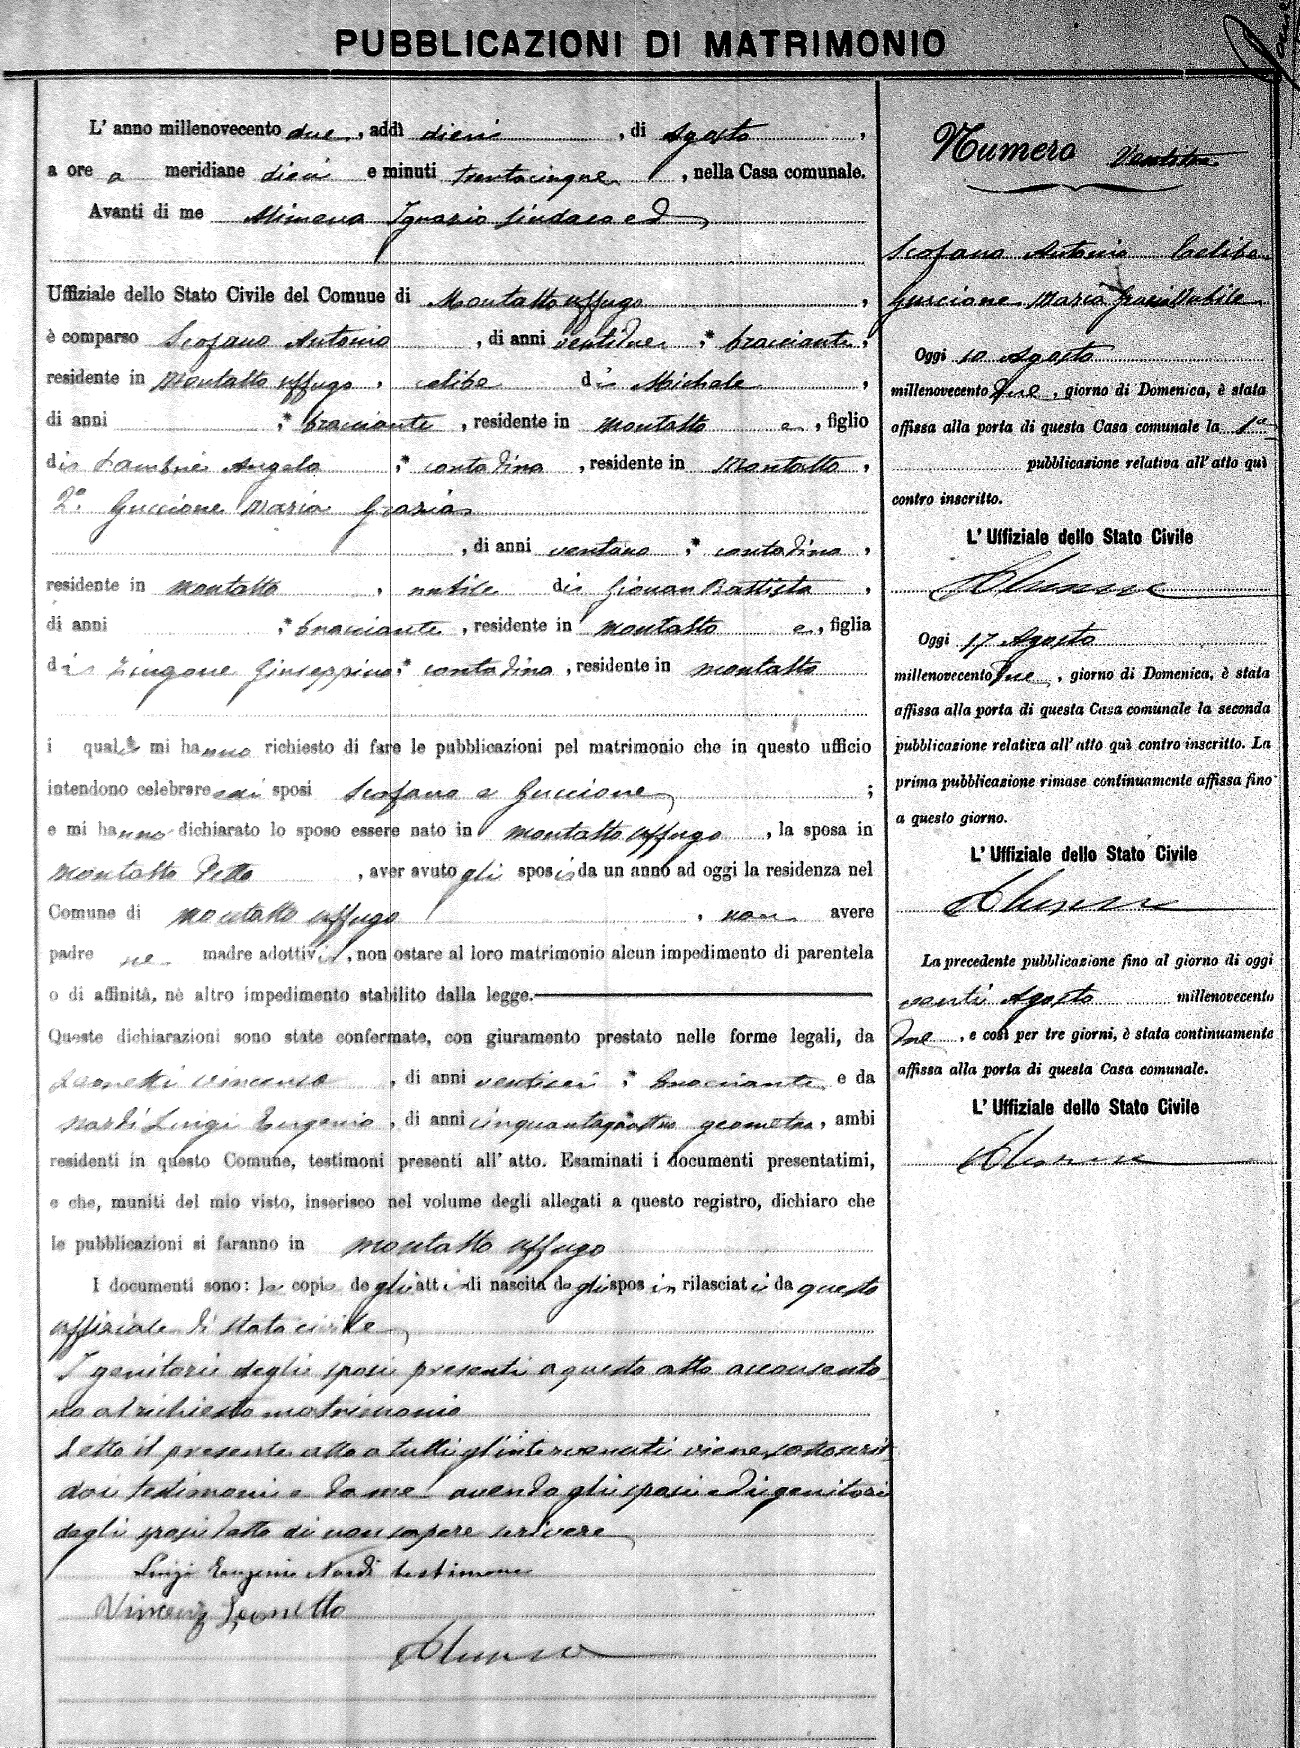 PUBBLICAZIONI DI MATRIMONIO
L' anno millenovecento due, addì dieci, di Agosto,
a ore a meridiane dieci e minuti trentacinque, nella Casa comunale.
Avanti di me Alimena Ignazio Sindaco ed
Uffiziale dello Stato Civile del Comune di Montalto Uffugo,
è comparso Scofano Antonio, di anni ventidue, * bracciante,
residente in Montalto Uffugo, celibe di Michele,
di anni , * bracciante, residente in Montalto e, figlio
di Angela, * contadina, residente in Montalto,
2° Guccione Maria Grazia
, di anni ventuno, * contadina,
residente in Montalto, nubile di Giovan Battista,
di anni , * bracciante, residente in Montalto e, figlia
di Zingone Giuseppina * contadina, residente in Montalto
i quali mi hanno richiesto di fare le pubblicazioni pel matrimonio che in questo ufficio
intendono celebrare essi sposi Scofano e Guccione;
e mi hanno dichiarato lo sposo essere nato in Montalto Uffugo, la sposa in
Montalto detto, aver avuto gli sposi da un anno ad oggi la residenza nel
Comune di Montalto Uffugo, non avere
padre ne madre adottivi, non ostare al loro matrimonio alcun impedimento di parentela
o di affinità, nè altro impedimento stabilito dalla legge.
Queste dichiarazioni sono state confermate, con giuramento prestato nelle forme legali, da
Leonetti Vincenzo, di anni ventisei, * bracciante e da
Nardi Luigi Eugenio, di anni cinquantaquattro geometra, ambi
residenti in questo Comune, testimoni presenti all' atto. Esaminati i documenti presentatimi,
e che, muniti del mio visto, inserisco nel volume degli allegati a questo registro, dichiaro che
le pubblicazioni si faranno in Montalto Uffugo
I documenti sono: le copie degli atti di nascita degli sposi rilasciati da questo
uffiziale di stato civile
I genitori degli sposi presenti a questo atto acconsento
no al richiesto matrimonio
Letto il presente atto a tutti gl'intervenuti viene sottoscritto
dai testimoni e da me avendo gli sposi ed i genitori
degli sposi detto di non sapere scrivere
Luigi Eugenio Nardi testimone
Vincenzo Leonetti
Alimena
Numero Ventitre
Scofano Antonio Celibe
Guccione Maria Grazia Nubile
Oggi 10 Agosto
millenovecento due, giorno di Domenica, è stata
affissa alla porta di questa Casa comunale la 1a
pubblicazione relativa all' atto quì
contro inscritto.
L' Uffiziale dello Stato Civile
Alimena
Oggi 17 Agosto
millenovecento due, giorno di Domenica, è stata
affissa alla porta di questa Casa comunale la seconda
pubblicazione relativa all' atto quì contro inscritto. La
prima pubblicazione rimase continuamente affissa fino
a questo giorno.
L' Uffiziale dello Stato Civile
Alimena
La precedente pubblicazione fino al giorno di oggi
venti Agosto millenovecento
due, e così per tre giorni, è stata continuamente
affissa alla porta di questa Casa comunale.
L' Uffiziale dello Stato Civile
Alimena